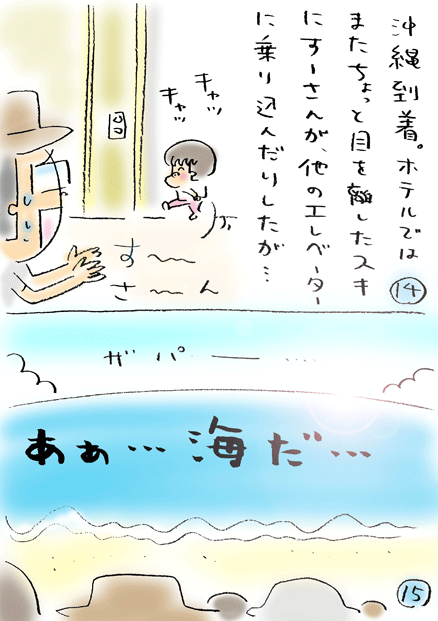 沖縄到着。ホテルでは
またちょっと目を離したスキ
にすーさんが、他のエレベーター
に乗り込んだりしたが…
キャッ
キャッ
す〜〜
さ〜〜ん
14
ザパーー……
あぁ…海だ…
15